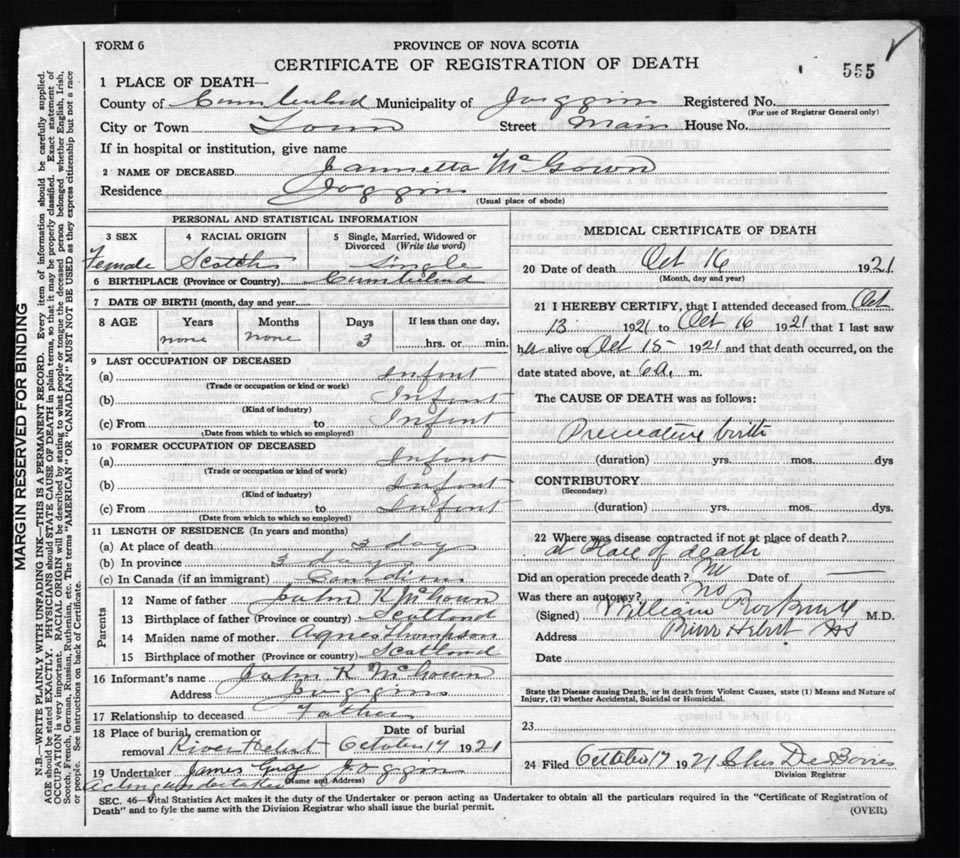 FORM 6
PROVINCE OF NOVA SCOTIA
CERTIFICATE OF REGISTRATION OF DEATH
555
1 PLACE OF DEATH—
County of Cumberland Municipality of Joggins Registered No.
(For use of Registrar General only)
City or Town Town Street Main House No.
If in hospital or institution, give name
2 NAME OF DECEASED Jannetta McGown
Residence Joggins
(Usual place of abode)
PERSONAL AND STATISTICAL INFORMATION
3 SEX 4 RACIAL ORIGIN 5 Single, Married, Widowed or Divorced (Write the word)
Female Scotch Single
6 BIRTHPLACE (Province or Country) Cumberland
7 DATE OF BIRTH (month, day and year)
8 AGE Years Months Days If less than one day,
none none 3 hrs. or min.
9 LAST OCCUPATION OF DECEASED
(a) Infont
(Trade or occupation or kind or work)
(b) Infont
(Kind of industry)
(c) From to Infont
(Date from which to which so employed)
10 FORMER OCCUPATION OF DECEASED
(a) Infont
(Trade or occupation or kind of work)
(b) Infont
(Kind of industry)
(c) From to Infont
(Date from which to which so employed)
11 LENGTH OF RESIDENCE (In years and months)
(a) At place of death 3 days
(b) In province 3 days
(c) In Canada (if an immigrant)
Parents
12 Name of father John K McGown
13 Birthplace of father (Province or country) Scotland
14 Maiden name of mother Agnes Thompson
15 Birthplace of mother (Province or country) Scotland
16 Informant's name John K McGown
Address Joggins
17 Relationship to deceased Father
18 Place of burial, cremation or removal River Hebert Date of burial October 17 1921
19 Undertaker James Gray Joggins
(Name and Address)
acting undertaker
MEDICAL CERTIFICATE OF DEATH
20 Date of death Oct 16 1921
(Month, day and year)
21 I HEREBY CERTIFY, that I attended deceased from Oct
13 1921 to Oct 16 1921 that I last saw
her alive on Oct 15 1921 and that death occurred, on the
date stated above, at 6 a. m.
The CAUSE OF DEATH was as follows:
Premature birth
(duration) yrs. mos. dys
CONTRIBUTORY
(Secondary)
(duration) yrs. mos. dys.
22 Where was disease contracted if not at place of death?
at Place of death
Did an operation precede death? No Date of —
Was there an autopsy? no
(Signed) William M.D.
Address River Hebert NS
Date
State the Disease causing Death, or in death from Violent Causes, state (1) Means and Nature of
Injury, (2) whether Accidental, Suicidal or Homicidal.
23
24 Filed October 17 1921
Division Registrar
SEC. 46—Vital Statistics Act makes it the duty of the Undertaker or person acting as Undertaker to obtain all the particulars required in the "Certificate of Registration of
Death" and to fyle the same with the Division Registrar who shall issue the burial permit.
(OVER)
MARGIN RESERVED FOR BINDING
N.B.—WRITE PLAINLY WITH UNFADING INK—THIS IS A PERMANENT RECORD. Every item of information should be carefully supplied.
AGE should be stated EXACTLY. PHYSICIANS should STATE CAUSE OF DEATH in plain terms, so that it may be properly classified. Exact statement of
OCCUPATION is very important. RACIAL ORIGIN will be described by stating to what people or tongue the deceased person belonged whether English, Irish,
Scotch, French, German, Russian, Ruthenian, etc. The terms "AMERICAN" OR "CANADIAN" MUST NOT BE USED as they express citizenship but not a race
or people. See instructions on back of Certificate.